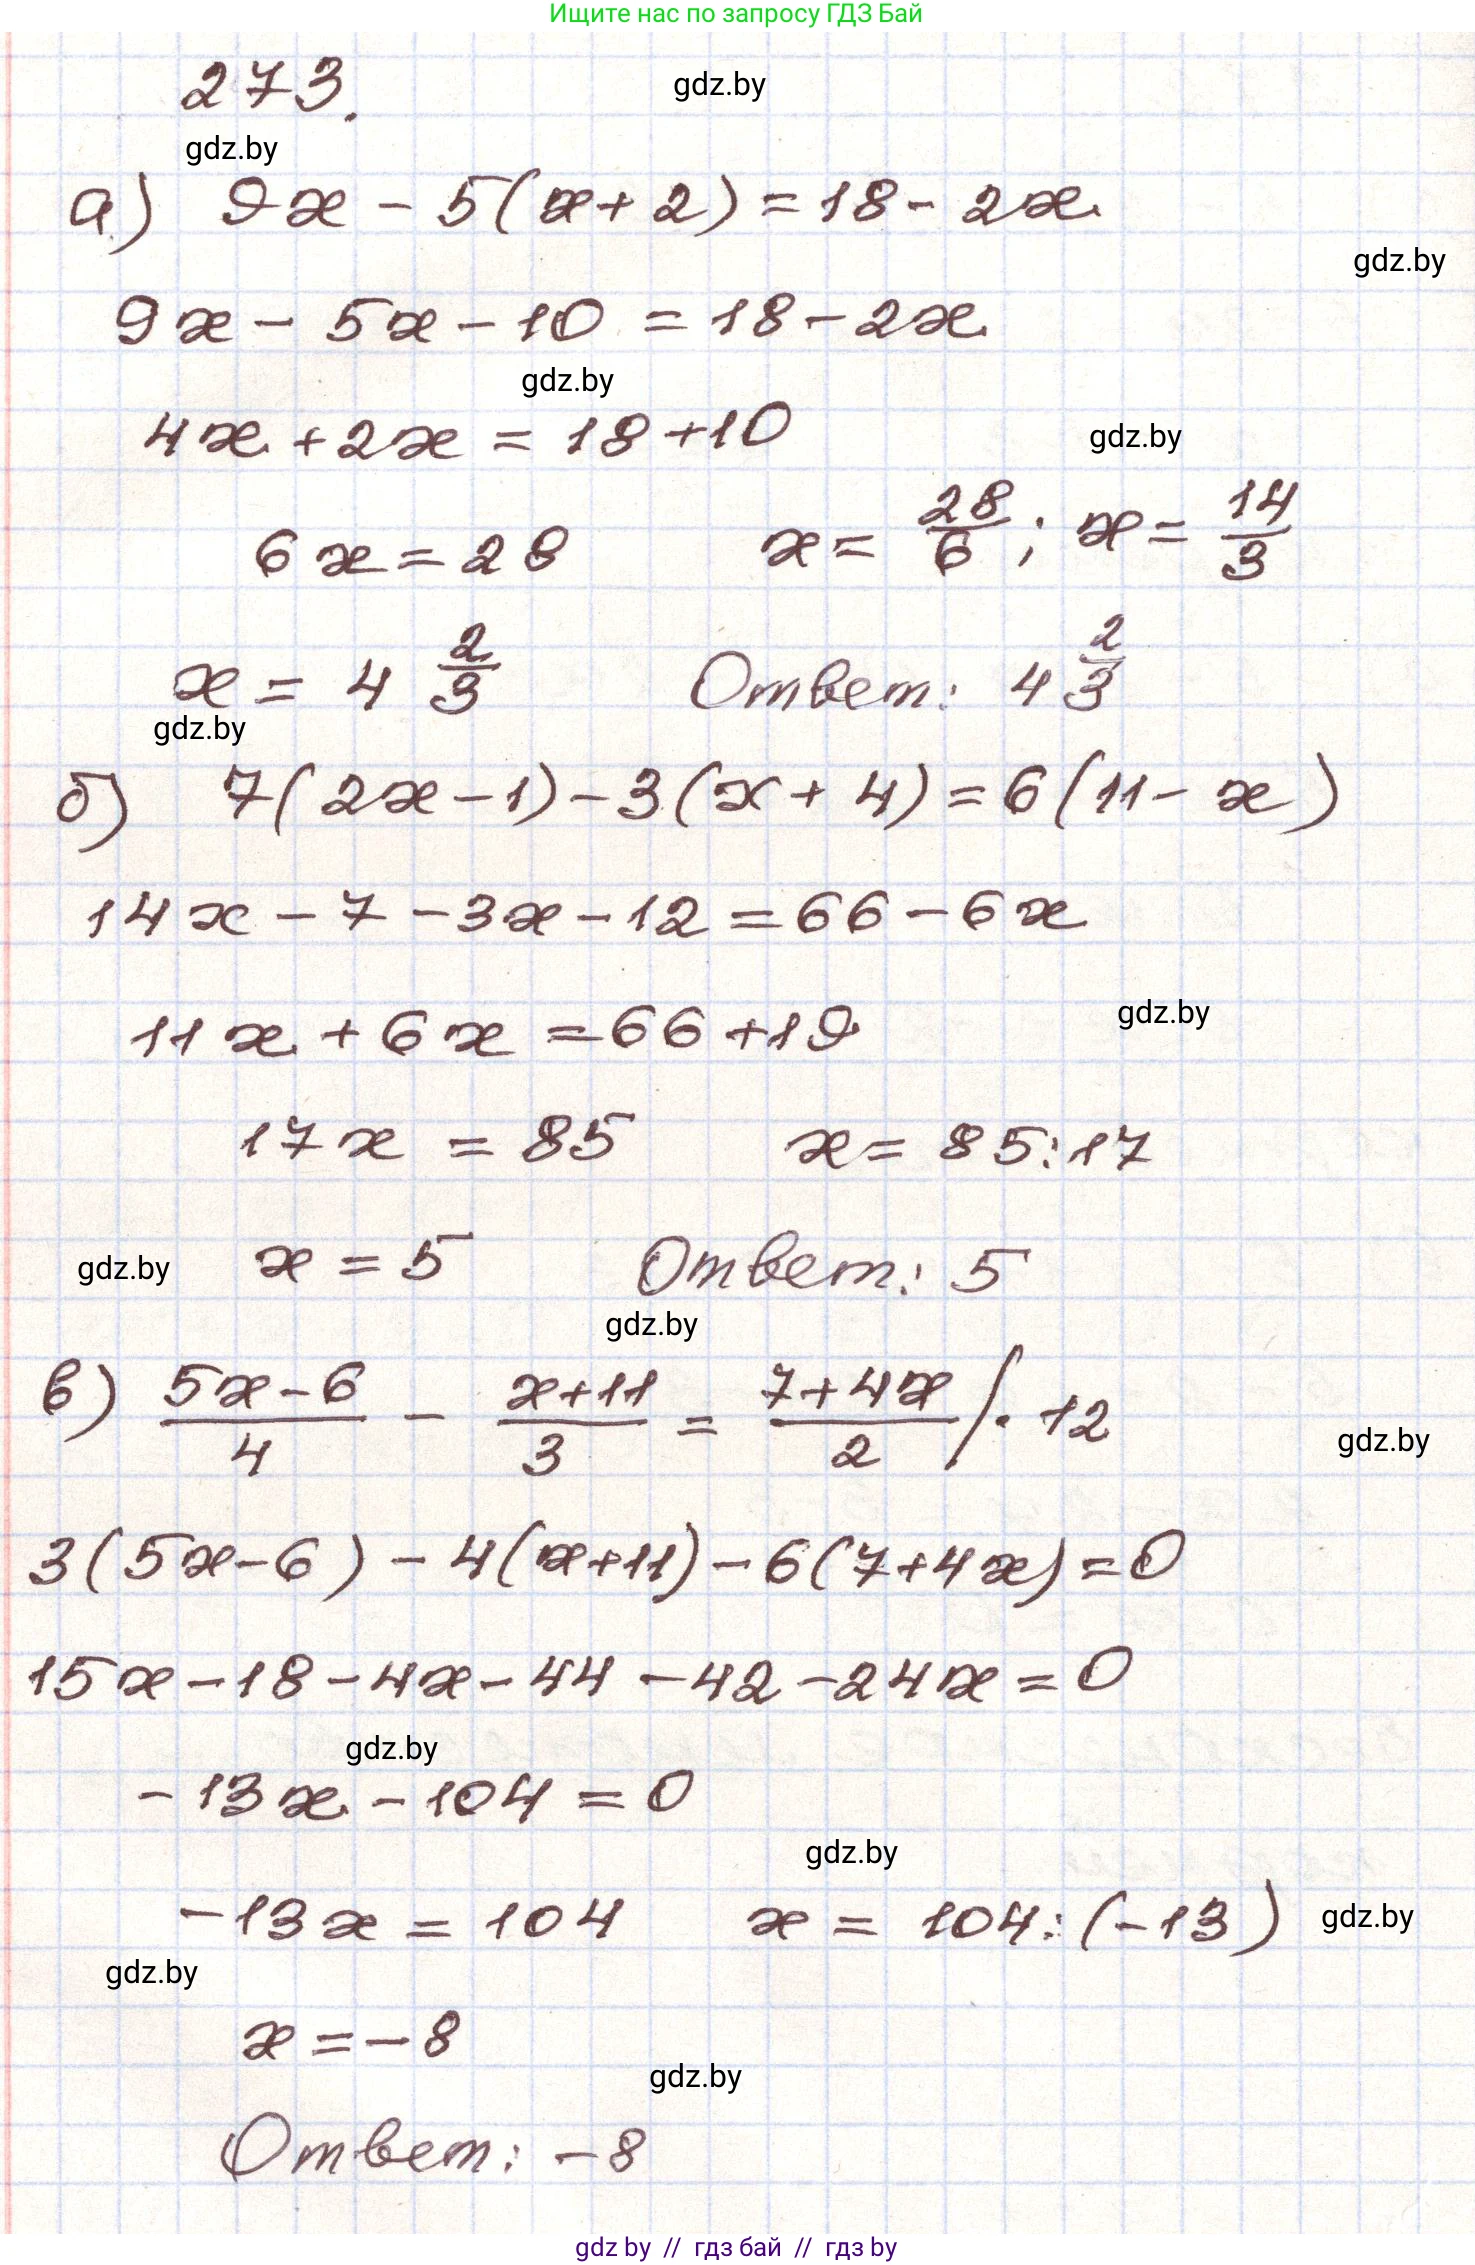 Ищите нас по запросу ГДЗ Бай
273.
gdz.by
gdz.by
а) 9x - 5(x + 2) = 18 - 2x
gdz.by
9x - 5x - 10 = 18 - 2x
gdz.by
4x + 2x = 18 + 10
gdz.by
6x = 28 x = 28/6; x = 14/3
x = 4 2/3 Ответ: 4 2/3
gdz.by
б) 7(2x - 1) - 3(x + 4) = 6(11 - x)
14x - 7 - 3x - 12 = 66 - 6x
gdz.by
11x + 6x = 66 + 19
17x = 85 x = 85:17
gdz.by
x = 5 Ответ: 5
gdz.by
в) (5x - 6)/4 - (x + 11)/3 = (7 + 4x)/2 | · 12
gdz.by
3(5x - 6) - 4(x + 11) - 6(7 + 4x) = 0
15x - 18 - 4x - 44 - 42 - 24x = 0
gdz.by
-13x - 104 = 0
gdz.by
-13x = 104 x = 104:(-13)
gdz.by
gdz.by
x = -8
gdz.by
Ответ: -8
gdz by // гдз бай // гдз by